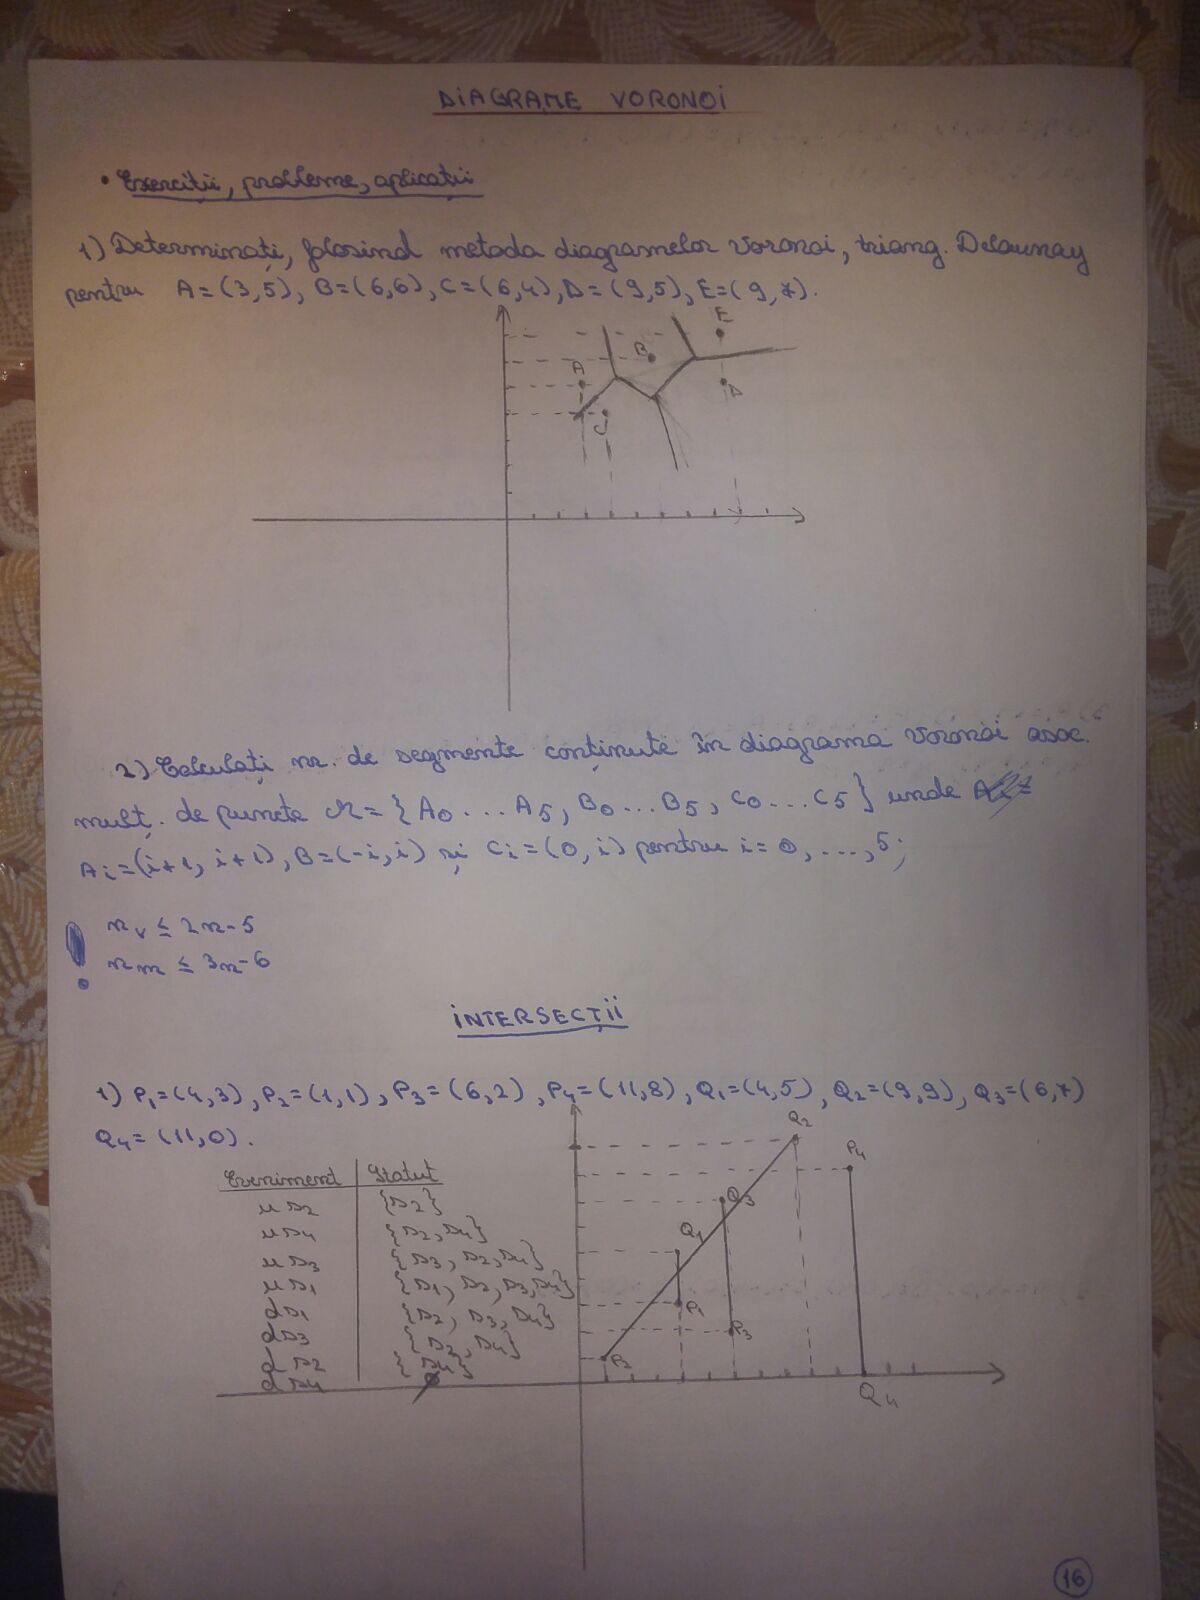 DIAGRAME VORONOI
• Exerciții, probleme, aplicații
1) Determinați, folosind metoda diagramelor Voronoi, triang. Delaunay
pentru A=(3,5), B=(6,6), C=(6,4), D=(9,5), E=(9,7).
E
B
A
D
C
2) Calculați nr. de segmente conținute în diagrama Voronoi asoc.
mulț. de puncte M={A0...A5, B0...B5, C0...C5} unde
Ai=(i+1, i+1), B=(-i,i) și Ci=(0,i) pentru i=0,...,5;
! nv ≤ 2n-5
nm ≤ 3n-6
INTERSECȚII
1) P1=(4,3), P2=(1,1), P3=(6,2), P4=(11,8), Q1=(4,5), Q2=(9,9), Q3=(6,7)
Q4=(11,0).
Eveniment Statut
u s2 {s2}
u s4 {s2, s4}
u s3 {s3, s2, s4}
u s1 {s1, s2, s3, s4}
d s1 {s2, s3, s4}
d s3 {s2, s4}
d s2 {s4}
d s4 Ø
Q2
P4
Q3
Q1
P1
P3
P2
Q4
16